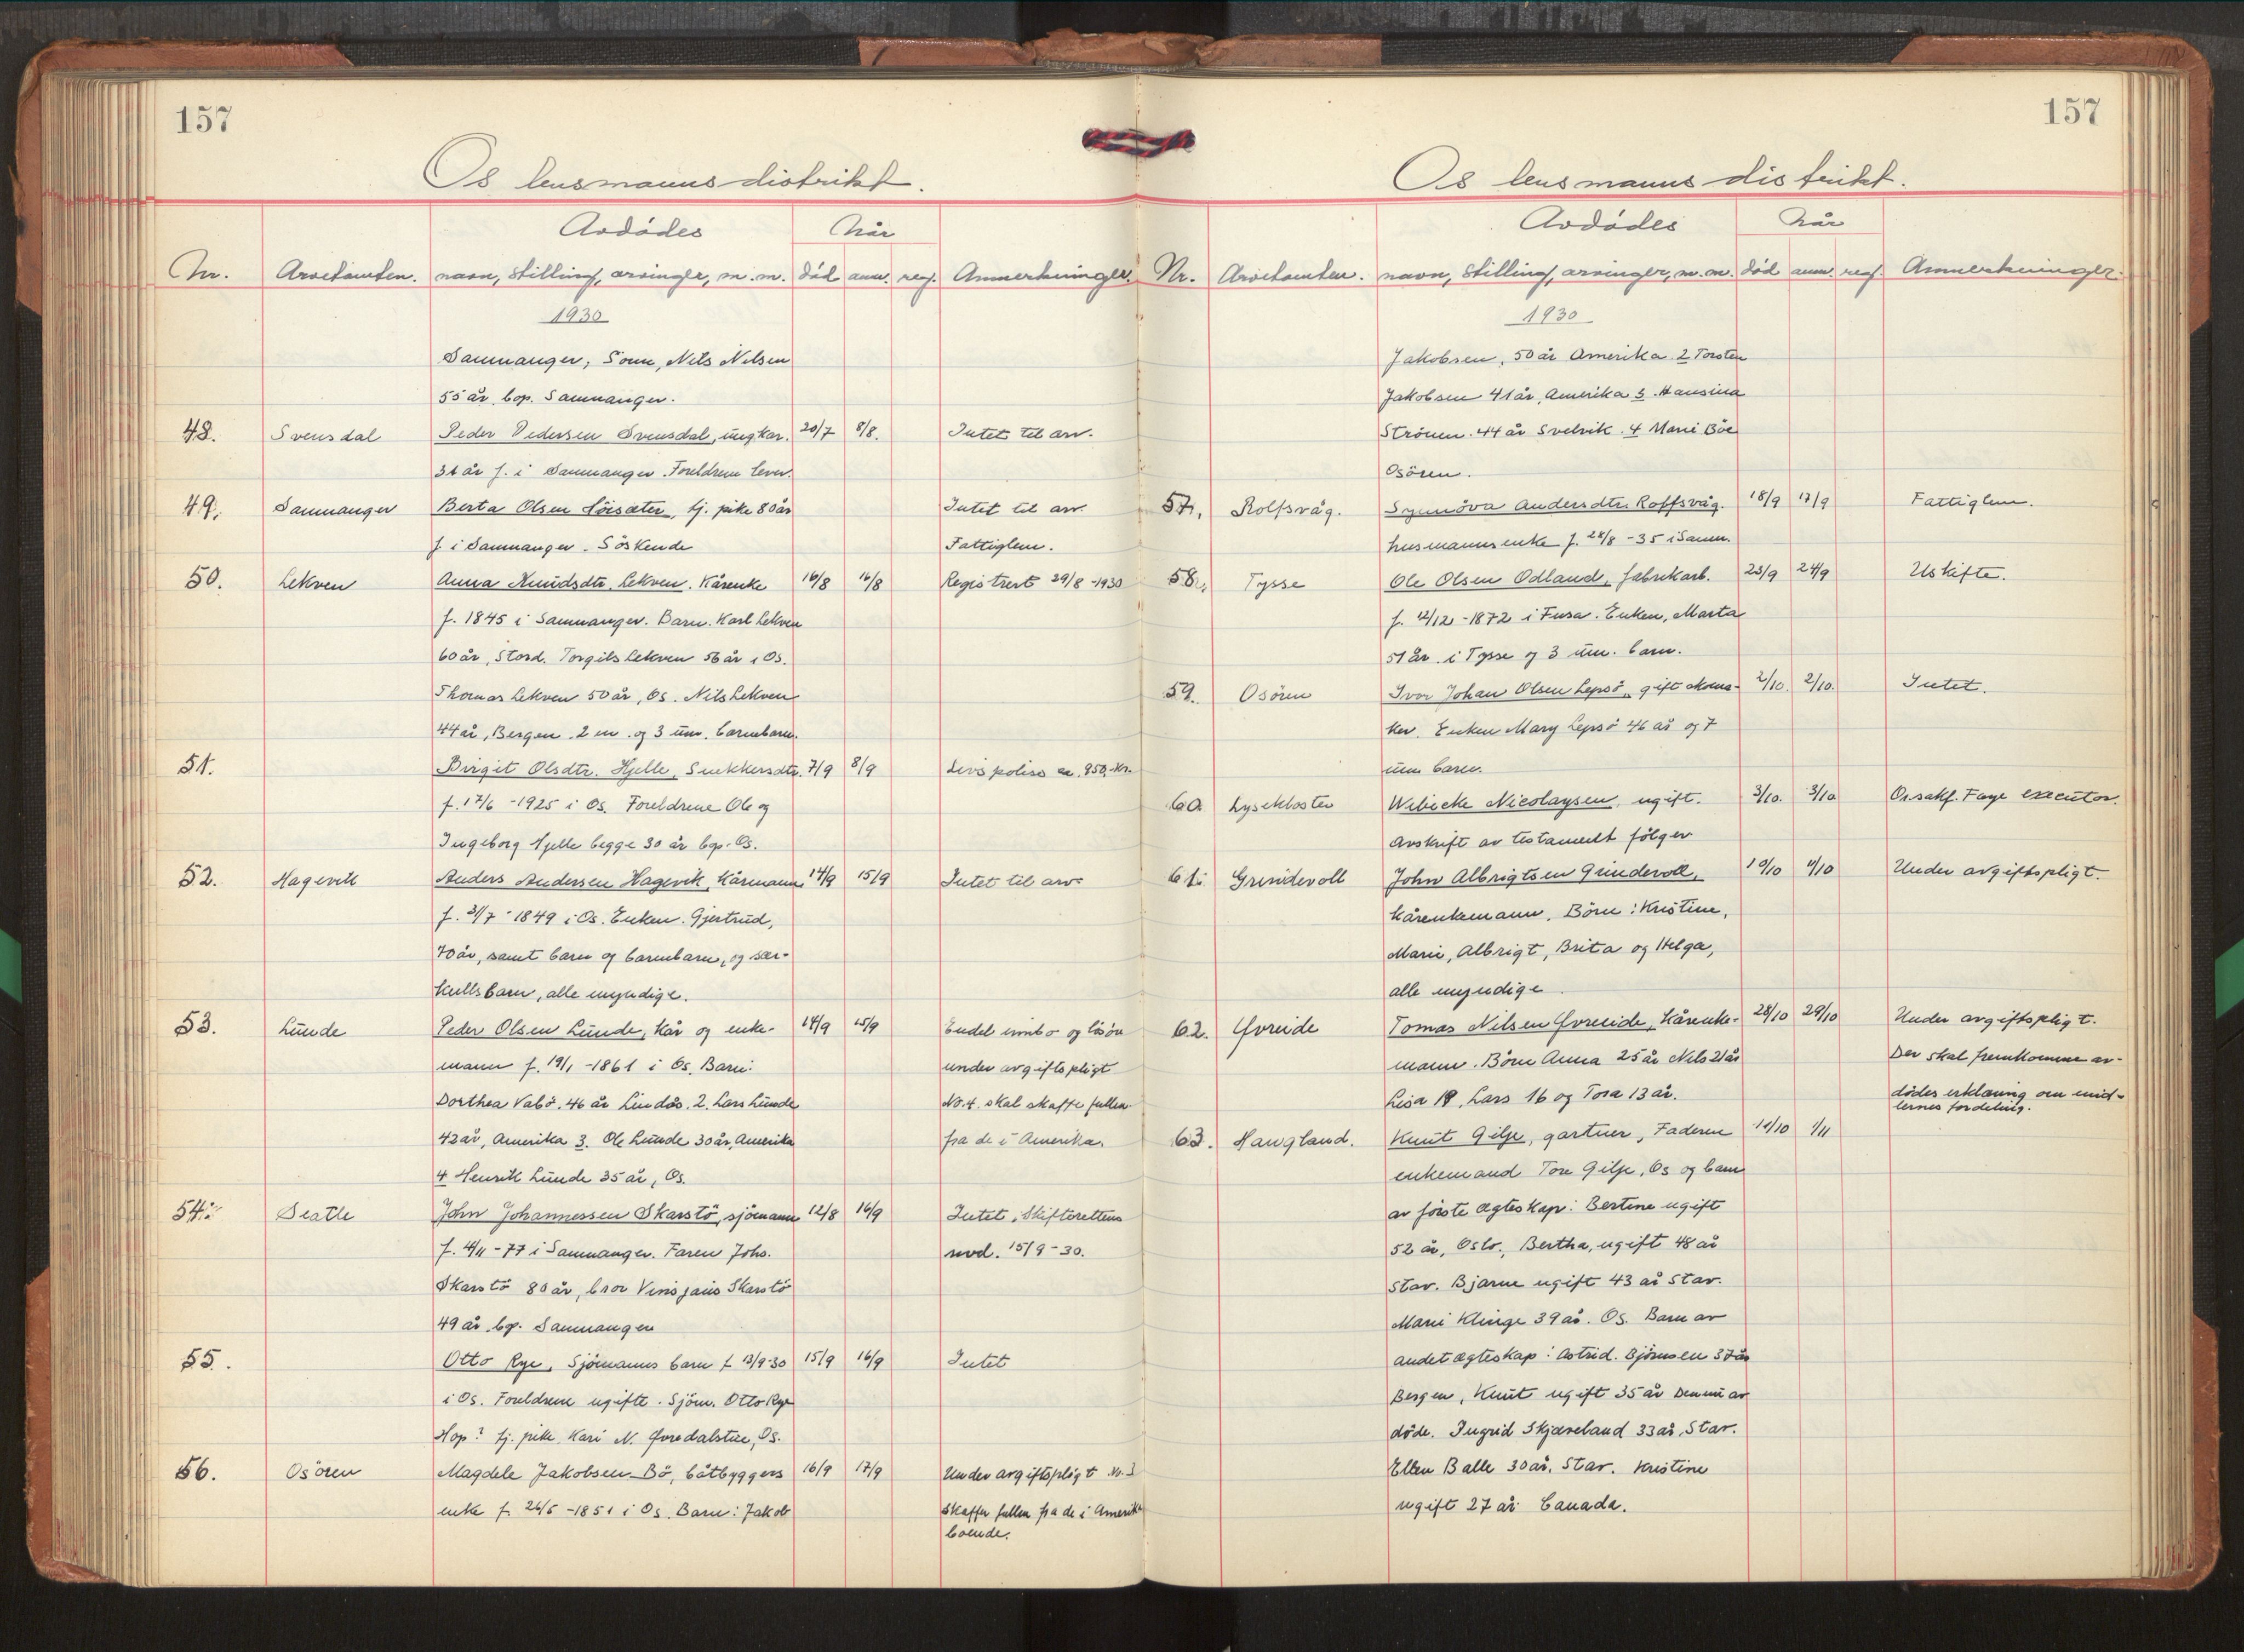 157
Os lensmannsdistrikt.
Avdödes
Når
Nr.
Arvetomten.
navn, stilling, arvinger, m. m.
död
anm.
reg.
Anmerkninger.
1930
Samnanger; Sönn, Nils Nilsen
55 år, bop. Samnanger.
48. Svensdal Peder Pedersen Svensdal, ungkar. 20/7 8/8. Intet til arv.
31 år f. i Samnanger. Foreldrene lever.
49. Samnanger Berta Olsen Löisæter, tj. pike 80 år Intet til arv.
f. i Samnanger. Söskende Fattiglem.
50. Lekven Anna Knudsdtr. Lekven. Kårenke 16/8 16/8 Registrert 29/8-1930
f. 1845 i Samnanger. Barn. Karl Lekven
60 år, Stord. Torgils Lekven 56 år i Os.
Thomas Lekven 50 år, Os. Nils Lekven
44 år, Bergen. 2 m. og 3 um. barnebarn.
51. Birgit Olsdtr. Hjelle, Snekkersdtr. 7/9 8/9 Livspolise ca. 950,- Kr.
f. 17/6 -1925 i Os. Foreldrene Ole og
Ingeborg Hjelle begge 30 år bop. Os.
52. Hagevik Anders Andersen Hagevik, Kårmann 14/9 15/9 Intet til arv
f. 31/7 - 1849 i Os. Enken. Gjertrud,
70 år, samt barn og barnebarn, og sær-
kullsbarn, alle myndige.
53. Lunde Peder Olsen Lunde, kår og enke- 14/9 15/9 Endel innbo og lösöre
mann f. 19/1 -1861 i Os. Barn: under avgiftspligt
Dorthea Valö. 46 år Lindås. 2. Lars Lunde No. 4. skal skaffe fullm.
42 år, Amerika 3. Ole Lunde 30 år, Amerika fra de i Amerika.
4 Henrik Lunde 35 år, Os.
54. Seatle John Johannessen Skarstö, sjömann 12/8 16/9 Intet, Skifterettens
f. 4/11 - 77 i Samnanger. Faren Johs. 15/9 - 30.
Skarstö 80 år, bror Skarstö
49 år, bop. Samnanger
55. Otto Rye, Sjömanns barn f. 13/9-30 15/9 16/9 Intet
i Os. Foreldrene ugifte. Sjöm. Otto Rye
Hop? tj. pike. Kari N. Os.
56. Osören Magdele Jakobsen Bö, båtbyggers 16/9 17/9 Under avgiftspligt Nr. 3
enke f. 26/5 -1851 i Os. Barn: Jakob skaffer fullm fra de i Amerika
boende.
157
Os lensmannsdistrikt.
Avdödes
Når
Nr.
Arvetomten.
navn, stilling, arvinger, m. m.
död
anm.
reg.
Anmerkninger.
1930
Jakobsen, 50 år Amerika. 2 Torsten
Jakobsen 41 år, Amerika 3. Hansina
Strönen. 44 år Svelvik. 4 Marie Böe
Osören.
57. Rolfsvåg. Synnöva Andersdtr. Rolfsvåg. 18/9 17/9 Fattiglem.
husmannsenke f. 28/8 - 35 i Samn.
58. Tysse Ole Olsen Odland, fabrikarb. 23/9 24/9 Uskifte.
f. 12/12 - 1872 i Fusa. Enken, Marta
51 år i Tysse og 3 um. barn.
59. Osören Ivor Johan Olsen Lepsö, gift 2/10. 2/10. Intet.
ker. Enken Mary Lepsö 46 år og 7
um. barn.
60. Lysekloster Wibicke Nicolaysen, ugift. 3/10. 3/10 Orsakf. Faye executor.
Avskrift av testamentet fölger
61. Grindevoll John Albrigtsen Grindevoll, 10/10 11/10 Under avgiftspligt.
kårenkemann, Börn: Kristine,
Marie, Albrigt, Brita og Helga,
alle myndige.
62. Övreide Tomas Nilsen Övreeide, Kårenke- 28/10 29/10 Under avgiftspligt.
mann. Börn Anna 25 år Nils 21 år Der skal fremkomme av-
Lisa 19, Lars 16 og Tora 13 år. dödes erklæring om mid-
lernes fordeling.
63. Haugland. Knut Gilje, gartner, Faderen 14/10 1/11
enkemand Tore Gilje, Os og barn
av förste ægteskap: Bertine ugift
52 år, Oslo., Bertha, ugift 48 år
Stav. Bjarne ugift 43 år Stav.
Marie Klinge 39 år. Os. Barn av
andet ægteskap: Astrid. Björnsen 37 år
Bergen, Knut ugift 35 år Den nu av
döde. Ingrid Skjæveland 33 år, Stav.
Ellen Balle 30 år, Stav. Kristine
ugift 27 år Canada.